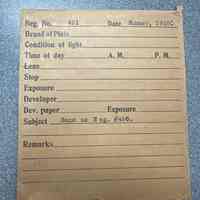 Neg. No. 401 Date Summer, 1920.
Brand of Plate
Condition of light
Time of day A. M. P. M.
Lens
Stop
Exposure
Developer
Dev. paper Exposure
Subject Same as Neg. #400.
Remarks